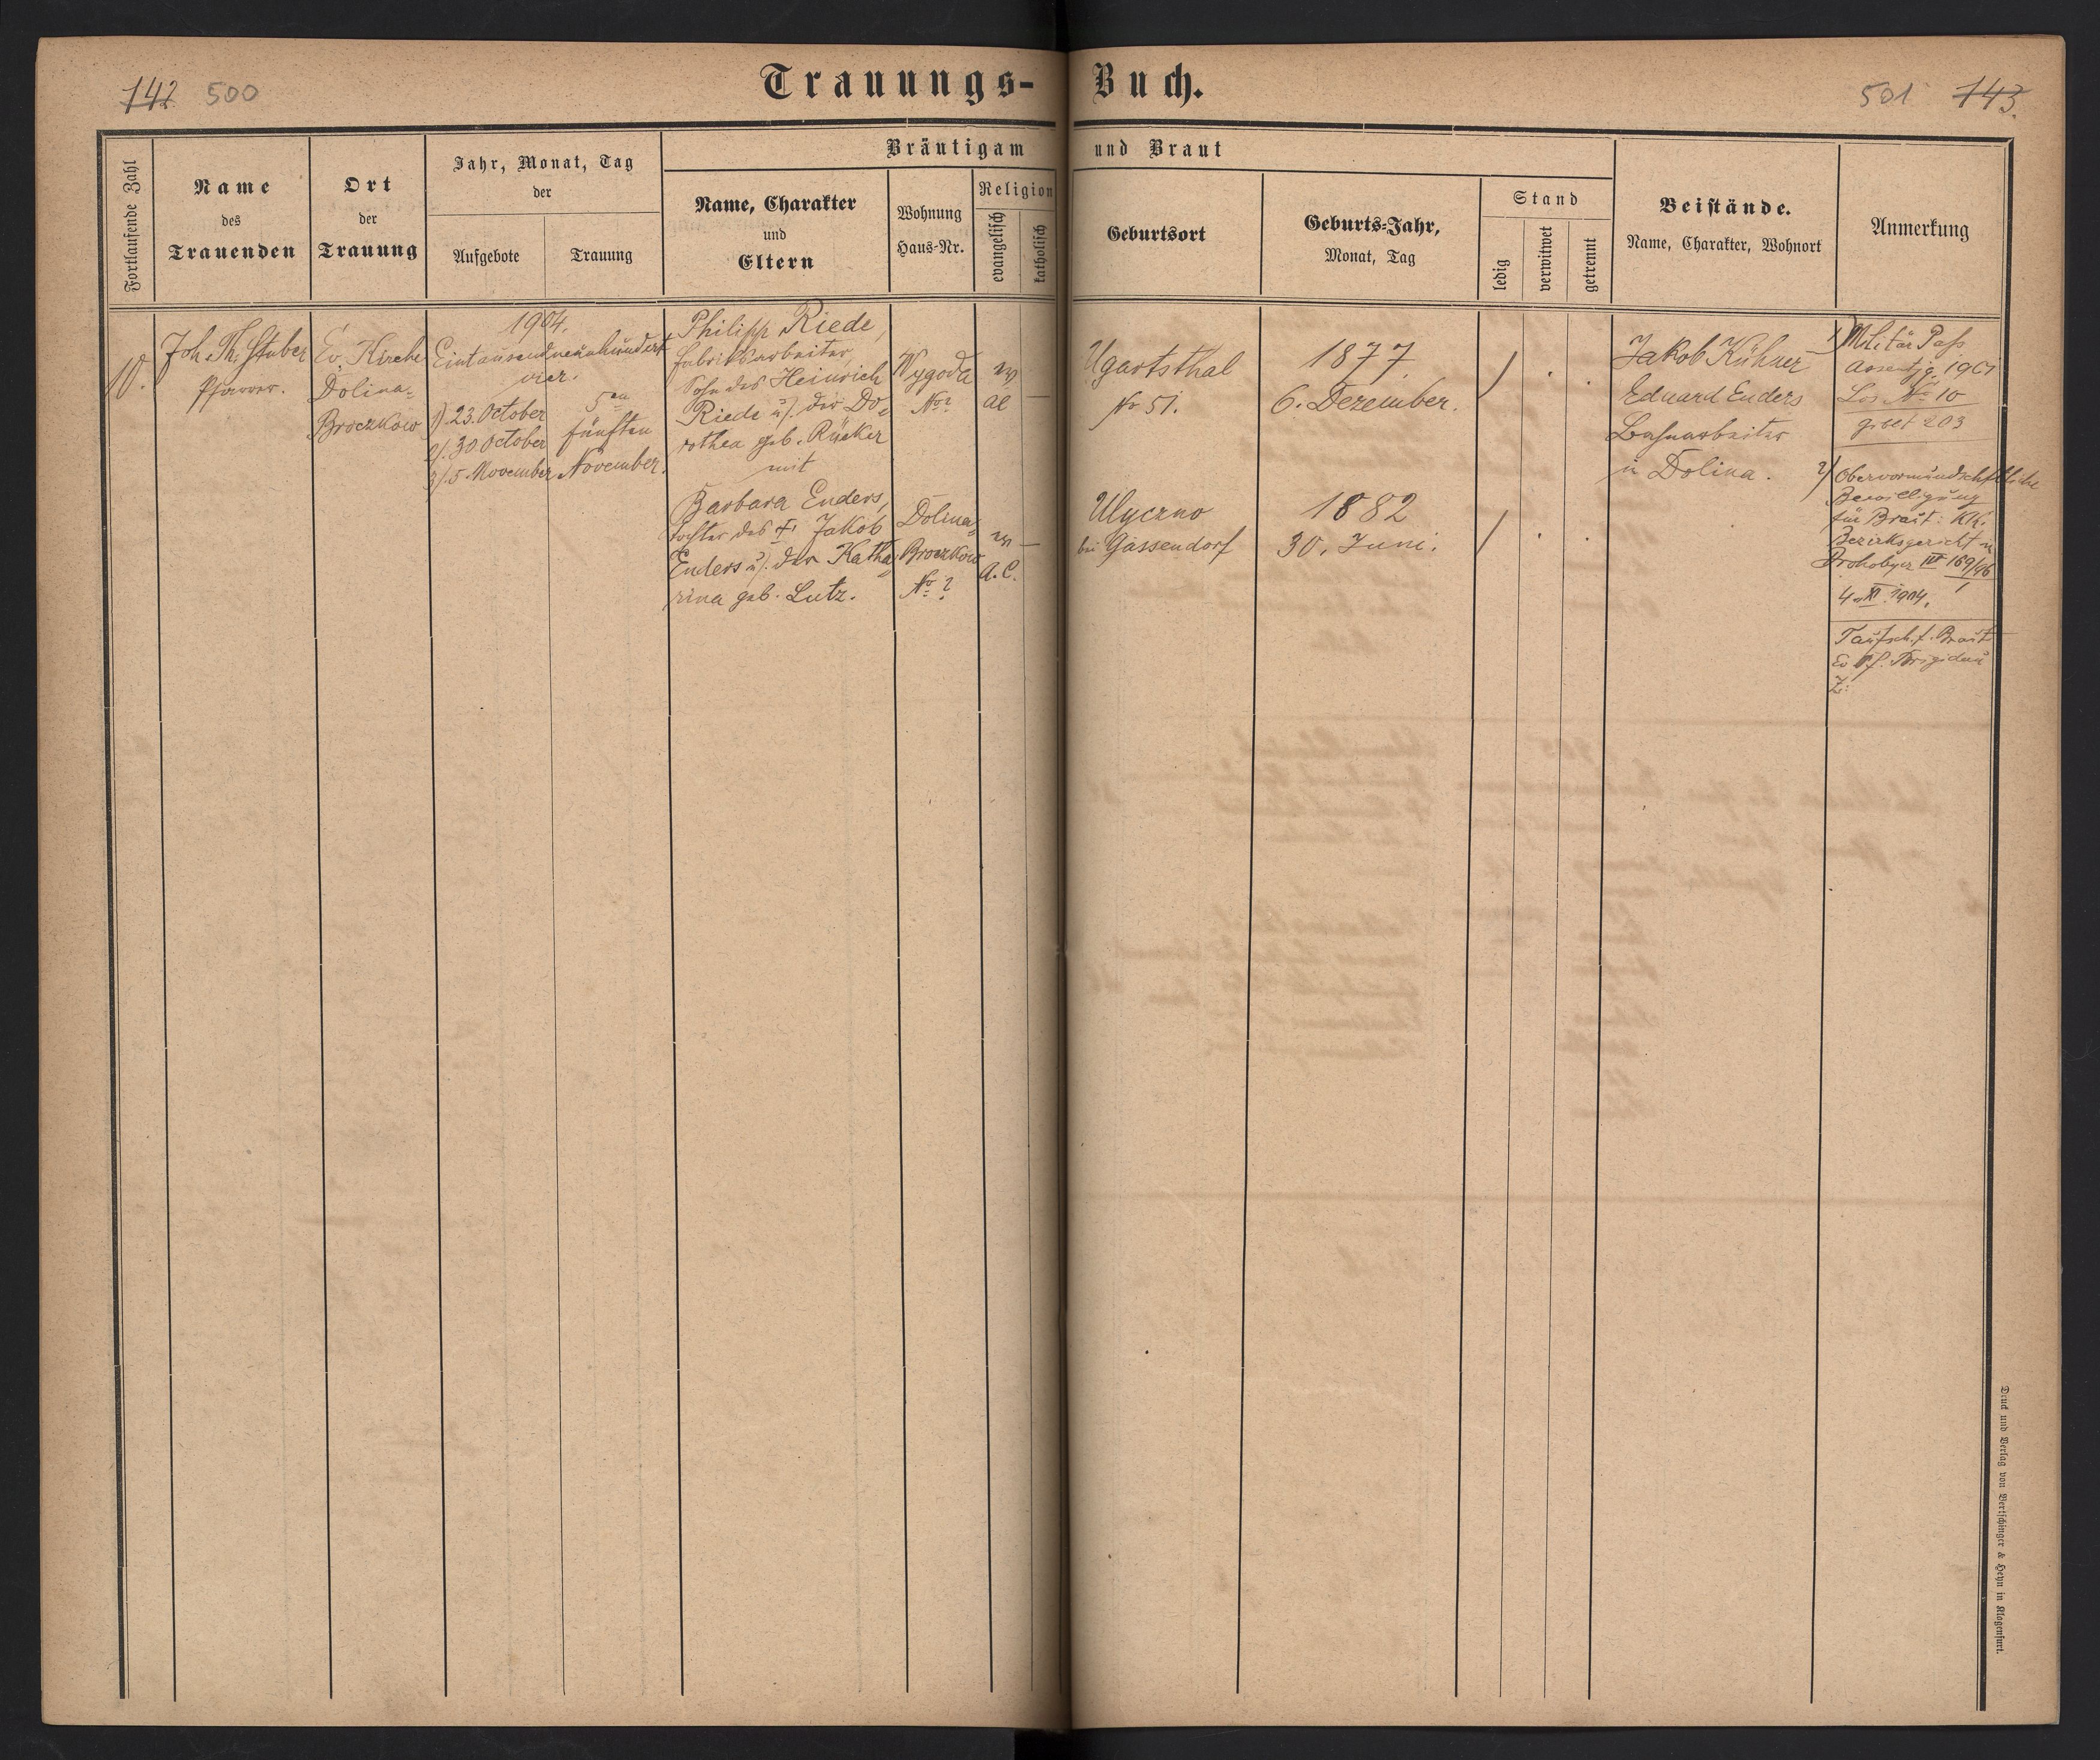 142 500
Trauungs-Buch.
501 143.
Fortlaufende Zahl
Name
des
Trauenden
Ort
der
Trauung
Jahr, Monat, Tag
der
Aufgebote
Trauung
Bräutigam und Braut
Name, Charakter
und
Eltern
Wohnung
Haus-Nr.
Religion
evangelisch
katholisch
Geburtsort
Geburts-Jahr,
Monat, Tag
Stand
ledig
verwitwet
getrennt
Beistände.
Name, Charakter, Wohnort
Anmerkung
10.
Joh. Th. Stuber
Pfarrer.
Ev. Kirche
Dolina-
Broczkow
1904.
Eintausendneunhundert
vier.
1) 23. October
2/. 30 October
3/. 5. November
5en
fünften
November.
Philipp Riede,
Fabriksarbeiter,
Sohn des Heinrich
Riede u/. der Do-
rothea geb. Rücker
mit
Barbara Enders,
Tochter des † Jakob
Enders u/. der Katha-
rina geb. Lutz.
Wygoda
No ?
ev
ac
—
Dolina-
Broczkow
No ?
ev —
A.C.
Ugartsthal
No 51.
1877.
6. Dezember.
/ . .
Ulyczno
bei Gassendorf
1882
30. Juni.
/ . .
Jakob Kühner
Eduard Enders
Bahnarbeiter
in Dolina.
1) Militär Pass
Assentjg. 1901
Los No 10
203
2/ Obervormundschaftliche
Bewilligung
für Braut: KK.
Bezirksgericht in
Drohobycz IV 169/96
4. XI. 1904.
Taufsch. f. Braut
Ev Pf. Brigidau
Z:
Druck und Verlag von Bertschinger & Heyn in Klagenfurt.